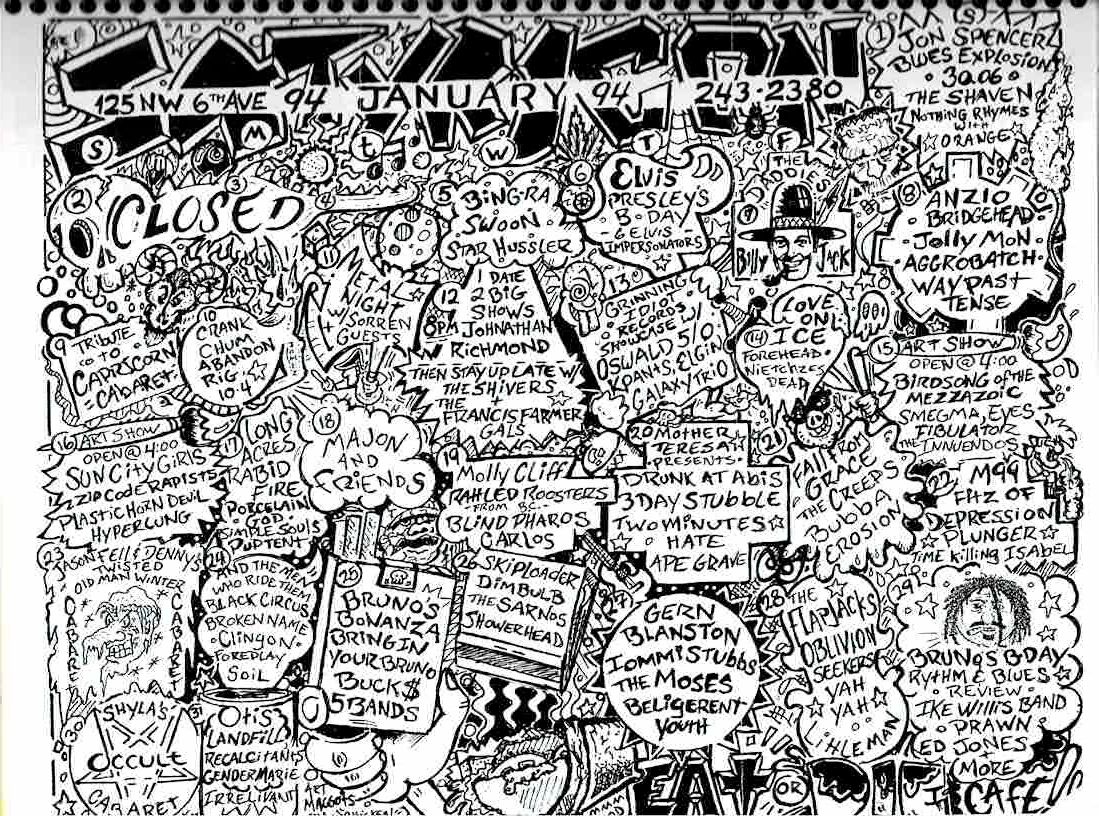 SATYRICON
125 NW 6TH AVE 94 JANUARY 94 243-2380
S M T W T F S
1
JON SPENCER
BLUES EXPLOSION
30.06
THE SHAVEN
NOTHING RHYMES
WITH
ORANGE
2
3
CLOSED
4
ETAL
NIGHT
W/ SORREN
+ GUESTS
5
BING-RA
SWOON
STAR HUSSLER
6
ELVIS
PRESLEY'S
B-DAY
& ELVIS
IMPERSONATORS
7
THE
DADDIES
Billy Jack
8
ANZIO
BRIDGEHEAD
Jolly Mon
AGGROBATCH
WAY PAST
TENSE
9
TRIBUTE
TO
CAPRICORN
CABARET
10
CRANK
CHUM
ABANDON
RIG
10-4
12
1 DATE
2 BIG
SHOWS
8PM JOHNATHAN
RICHMOND
THEN STAY UP LATE W/
THE SHIVERS
THE
FRANCIS FARMER
GALS
13
GRINNING
IDIOT
RECORDS
SHOWCASE W/
OSWALD 5/0
KPANTS, ELGIN
GALAXY TRIO
14
LOVE
ON
ICE
FOREHEAD
NIETCHZES
DEAD
15
ART SHOW
OPEN @ 4:00
BIRDSONG OF THE
MEZZAZOIC
SMEGMA, EYES
FIBULATOR
THE INNUENDOS
16
ART SHOW
OPEN @ 4:00
SUN CITY GIRLS
12 ZIP CODE RAPISTS
PLASTIC HORN DEVIL
HYPERLUNG
17
LONG
ACRES
RABID
FIRE
PORCELAIN
GOD
SIMPLE SOULS
PUPTENT
18
MAJON
AND
FRIENDS
19
Molly Cliff
RAHLED ROOSTERS
FROM B.C.
BLIND PHAROS
CARLOS
20
MOTHER
TERESAH
PRESENTS
DRUNK AT ABIS
3 DAY STUBBLE
TWO MINUTES
HATE
APE GRAVE
21
FALL FROM
GRACE
THE CREEPS
BUBBA
EROSION
22
M99
FITZ OF
DEPRESSION
PLUNGER
TIME KILLING ISABEL
23
JASON FELL & DENNYS
TWISTED
OLD MAN WINTER
CABARET
CABARET
24
AND THE MEN
WHO RIDE THEM
BLACK CIRCUS
BROKEN NAME
CLINGON
FOREPLAY
SOIL
25
BRUNO'S
BONANZA
BRING IN
YOUR BRUNO
BUCK$
5 BANDS
26
SKIPLOADER
DIMBULB
THE SARNOS
SHOWERHEAD
27
GERN
BLANSTON
IOMMI STUBBS
THE MOSES
BELIGERENT
YOUTH
28
THE
FLAPJACKS
OBLIVION
SEEKERS
YAH
YAH
IHLEMAN
29
BRUNO'S BDAY
RYTHM & BLUES
REVIEW
IKE WILLIS BAND
PRAWN
ED JONES
MORE
30
SHYLA'S
OCCULT
CABARET
31
OTIS
LANDFILL
RECALCITANTS
GENDERMARIE
IRRELIVANT
ART
MAGGOTS
EAT OR DIE
CAFE